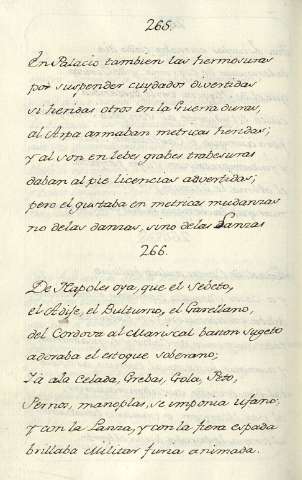 265.
En Palacio tambien las hermosuras
por suspender cuydados divertidas
si heridas otros en la Guerra duras,
al Arpa armaban metricas heridas;
y al son en lebes grabes trabesuras
daban al pie licencias advertidas;
pero el gustaba en metricas mudanzas
no de las danzas, sino de las Lanzas
266.
De Napoles oya, que el Sebeto,
el Adise, el Bulturno, el Garellano,
del Cordova al Mariscal baston sugeto
adoraba el estoque soberano;
Ya a la Celada, Grebas, Gola, Peto,
Pernos, manoplas, se imponia ufano;
y con la Lanza, y con la fiera espada
brillaba Militar furia animada.